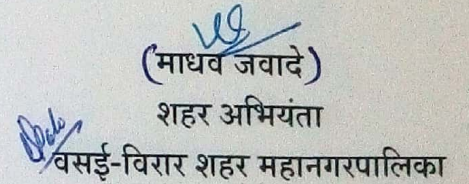 (माधव जवादे)
शहर अभियंता
वसई-विरार शहर महानगरपालिका